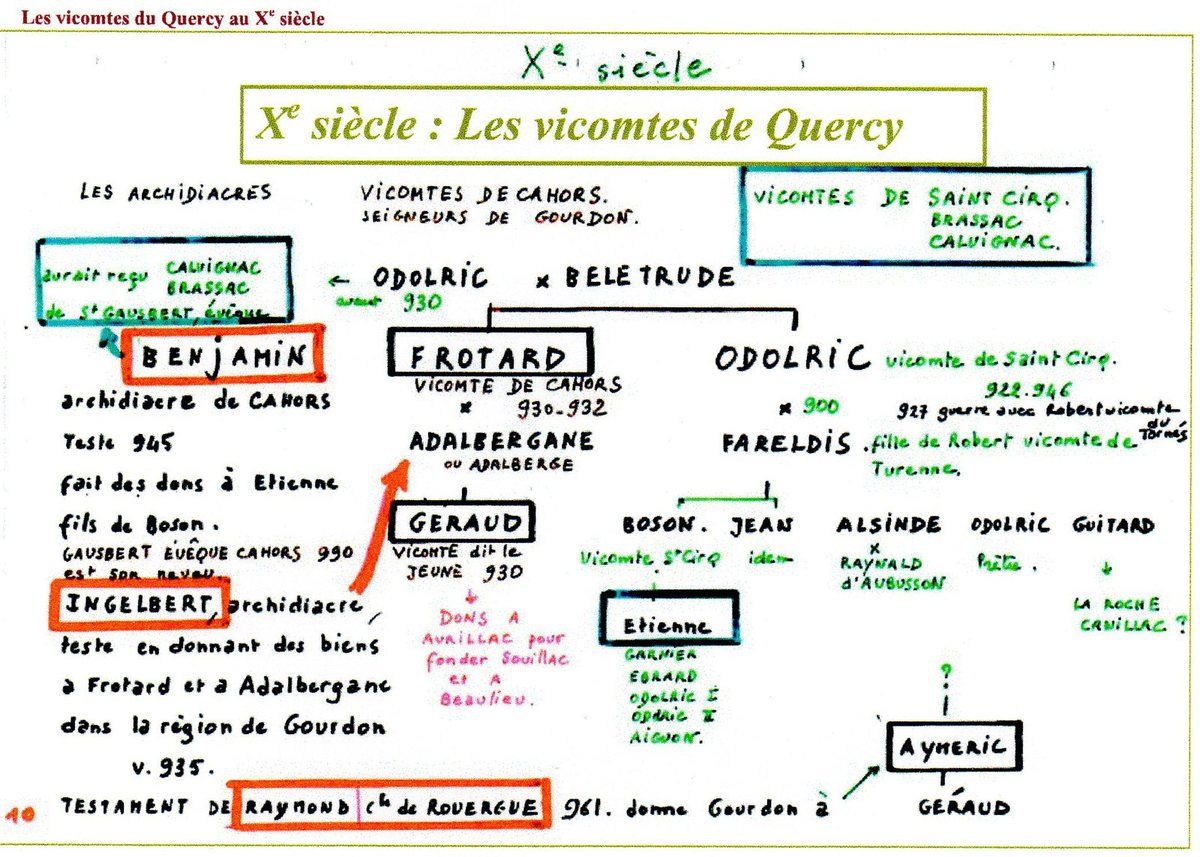 Les vicomtes du Quercy au Xe siècle
Xe siècle
Xe siècle : Les vicomtes de Quercy
LES ARCHIDIACRES
VICOMTES DE CAHORS.
SEIGNEURS DE GOURDON.
VICOMTES DE SAINT CIRQ.
BRASSAC
CALVIGNAC.
aurait reçu CALVIGNAC
BRASSAC
de St GAUSBERT, évêque
← ODOLRIC x BELETRUDE
avant 930
BENJAMIN
archidiacre de CAHORS
Teste 945
fait des dons à Etienne
fils de Boson.
GAUSBERT EVÊQUE CAHORS 990
est son neveu.
INGELBERT, archidiacre,
teste en donnant des biens
a Frotard et a Adalbergane
dans la région de Gourdon
v. 935.
FROTARD
VICOMTE DE CAHORS
x 930-932
ADALBERGANE
OU ADALBERGE
GERAUD
VICOMTE dit le
JEUNE 930
↓
DONS A
AURILLAC pour
fonder Souillac
et A
Beaulieu.
ODOLRIC vicomte de Saint Cirq.
922.946
x 900
927 guerre avec Robert vicomte
du
FARELDIS. fille de Robert vicomte de
Turenne.
BOSON. JEAN ALSINDE ODOLRIC GUITARD
Vicomte St Cirq idem
x
RAYNALD
d'AUBUSSON
Prêtre.
↓
LA ROCHE
CANILLAC ?
Etienne
GARNIER
EBRARD
ODOLRIC I
ODOLRIC II
AIGUON.
?
AYMERIC
GÉRAUD
10 TESTAMENT DE RAYMOND Cte de ROUERGUE 961. donne Gourdon à